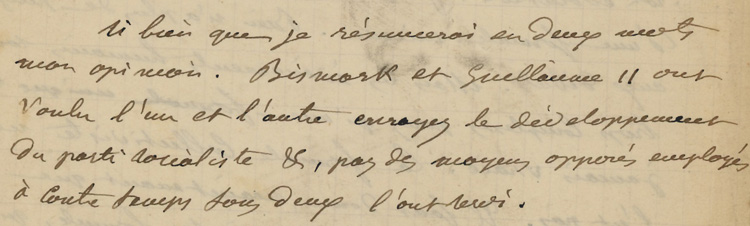 si bien que je résumerai en deux mots
mon opinion. Bismark et Guillaume II ont
voulu l'un et l'autre enrayer le développement
du parti socialiste &, par des moyens opposés employés
à contre temps tous deux l'ont servi.